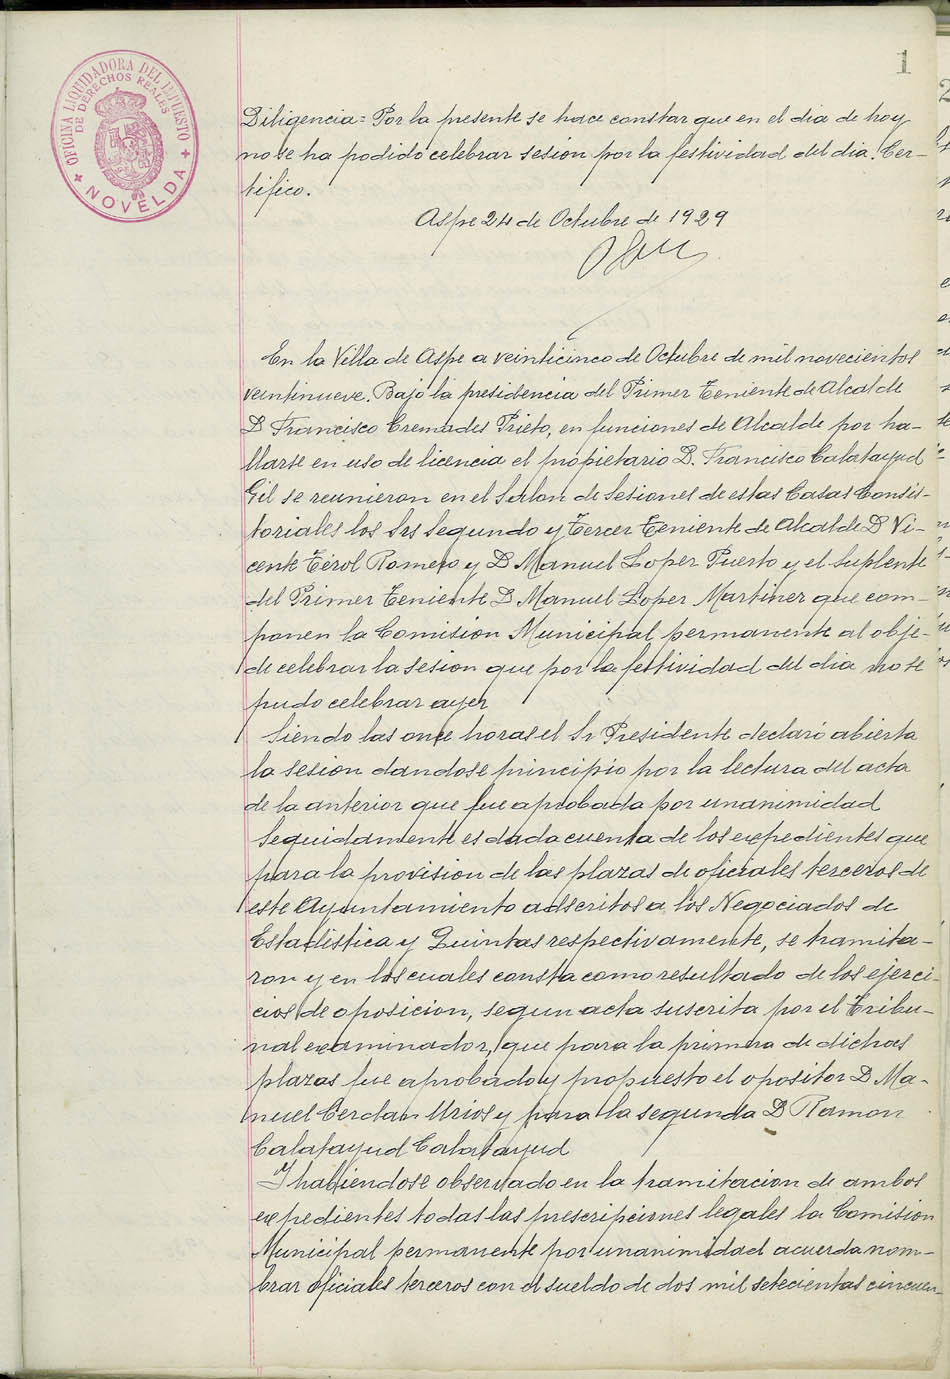 1
OFICINA LIQUIDADORA DEL IMPUESTO
DE DERECHOS REALES
NOVELDA
Diligencia = Por la presente se hace constar que en el dia de hoy
no se ha podido celebrar sesion por la festividad del dia. Cer-
tifico.
Aspe 24 de Octubre de 1929
En la Villa de Aspe a veinticinco de Octubre de mil novecientos
veintinueve. Bajo la presidencia del Primer Teniente de Alcalde
D Francisco Cremades Prieto, en funciones de Alcalde por ha-
llarse en uso de licencia el propietario D. Francisco Calatayud
Gil se reunieron en el Salon de Sesiones de estas Casas Consis-
toriales los Srs Segundo y Tercer Teniente de Alcalde D Vi-
cente Térol Romero y D Manuel Lopez Puerto y el Suplente
del Primer Teniente D Manuel Lopez Martinez que com-
ponen la Comision Municipal permanente al obje-
de celebrar la sesion que por la festividad del dia no se
pudo celebrar ayer
Siendo las once horas el Sr Presidente declaró abierta
la sesion dandose principio por la lectura del acta
de la anterior que fue aprobada por unanimidad
Seguidamente es dada cuenta de los expedientes que
para la provision de las plazas de oficiales terceros de
este Ayuntamiento adscritos a los Negociados de
Estadistica y Quintas respectivamente, se tramita-
ron y en los cuales consta como resultado de los ejerci-
cios de oposicion, segun acta suscrita por el Tribu-
nal examinador, que para la primera de dichas
plazas fue aprobado y propuesto el opositor D Ma-
nuel Cerdan Urios y para la segunda D Ramon
Calatayud Calatayud
Y habiendose observado en la tramitacion de ambos
expedientes todas las prescripciones legales la Comision
Municipal permanente por unanimidad acuerda nom-
brar oficiales terceros con el sueldo de dos mil setecientas cincuen-